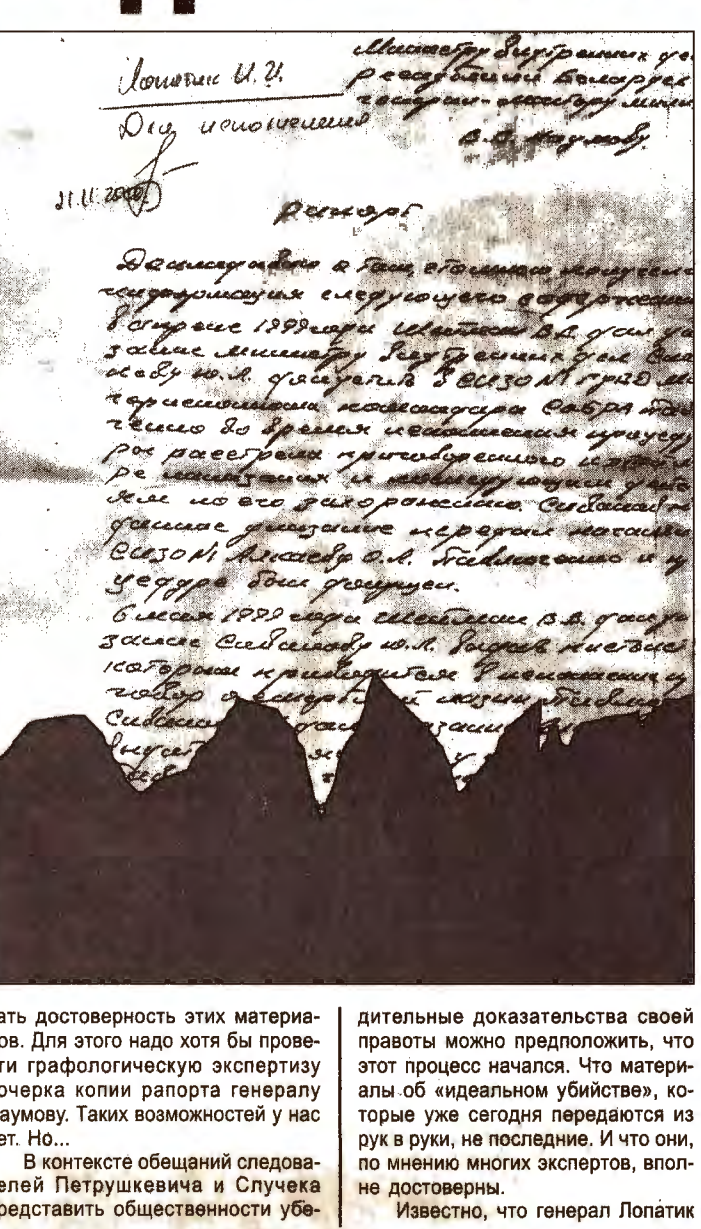 Лопатик И.И.
Для исполнения
21.11.2000
Министру внутренних де
республики Беларусь
генерал-майору мили
В.В. Наумову
рапорт
Докладываю о том, что мною получена
информация следующего содержани
В апреле 1999 года Шейман В.В. дал ука
зание министру внутренних дел Сива
кову Ю.Л. допустить в СИЗО №1
командира СОБРа Пав
во время исполнения процеду
ры расстрела приговоренного к
ре наказания и
ям по его захоронению. Сиваков
данное указание передал начальни
СИЗО №1 Алкаеву О.Л. Павлюченко к
цедуре был допущен.
6 мая 1999 года Шейман В.В. дал ука
зание Сивакову Ю.Л. выдать пистолет
которым приводится в исполнение
ать достоверность этих материа-
ов. Для этого надо хотя бы прове-
ти графологическую экспертизу
очерка копии рапорта генералу
аумову. Таких возможностей у нас
ет. Но...
В контексте обещаний следова-
елей Петрушкевича и Случека
редставить общественности убе-
дительные доказательства своей
правоты можно предположить, что
этот процесс начался. Что матери-
алы об «идеальном убийстве», ко-
торые уже сегодня передаются из
рук в руки, не последние. И что они,
по мнению многих экспертов, впол-
не достоверны.
Известно, что генерал Лопатик